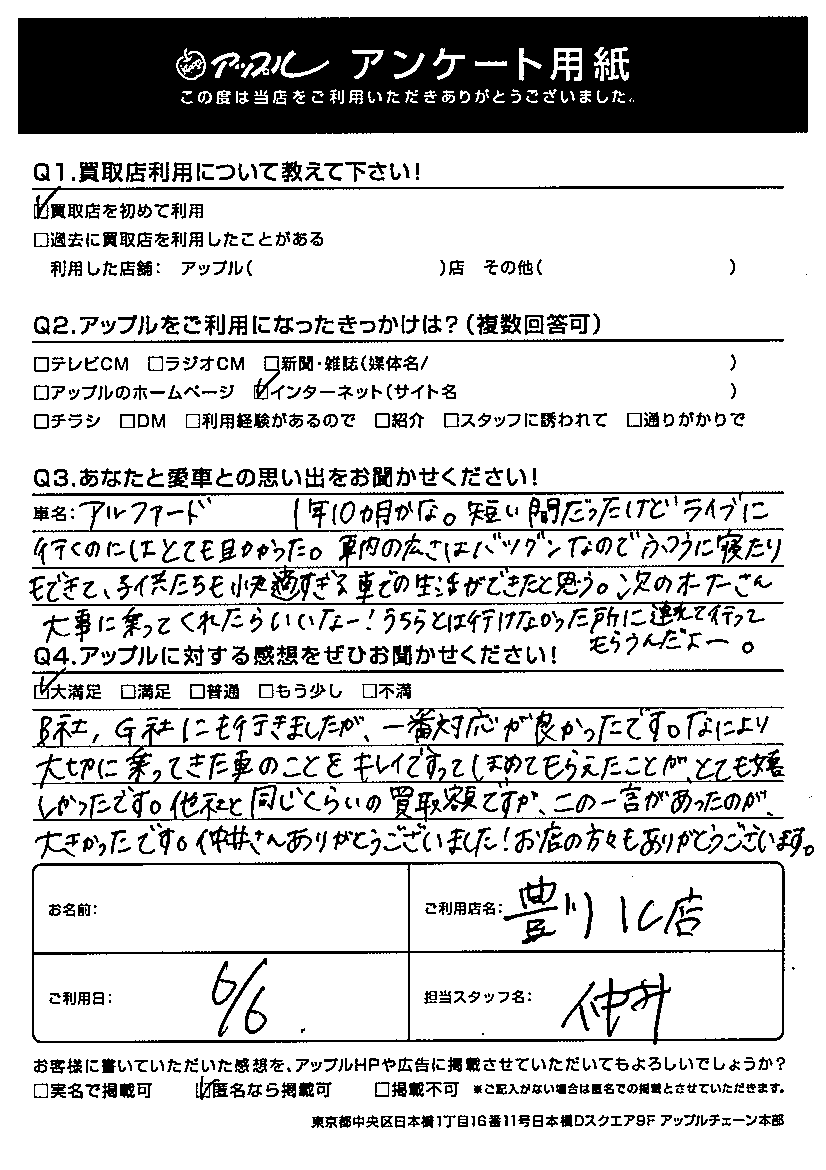 アップル アンケート用紙
この度は当店をご利用いただきありがとうございました。
Q1.買取店利用について教えて下さい!
☑買取店を初めて利用
□過去に買取店を利用したことがある
利用した店舗: アップル( )店 その他( )
Q2.アップルをご利用になったきっかけは?(複数回答可)
□テレビCM □ラジオCM □新聞・雑誌(媒体名/ )
□アップルのホームページ ☑インターネット(サイト名 )
□チラシ □DM □利用経験があるので □紹介 □スタッフに誘われて □通りがかりで
Q3.あなたと愛車との思い出をお聞かせください!
車名: アルファード 1年10カ月かな。短い間だったけどライブに
行くのにはとても良かった。車内の広さはバツグンなのでふつうに寝たり
もできて、子供たちも快適すぎる車での生活ができたと思う。次のオーナーさん
大事に乗ってくれたらいいなー!うちらとは行けなかった所に連れて行って
もらうんだよー。
Q4.アップルに対する感想をぜひお聞かせください!
☑大満足 □満足 □普通 □もう少し □不満
B社,G社にも行きましたが、一番対応が良かったです。なにより
大切に乗ってきた車のことをキレイですってほめてもらえたことが、とても嬉
しかったです。他社と同じくらいの買取額ですが、この一言があったのが、
大きかったです。仲井さんありがとうございました!お店の方々もありがとうございます。
お名前:
ご利用店名: 豊川IC店
ご利用日: 6/6
担当スタッフ名: 仲井
お客様に書いていただいた感想を、アップルHPや広告に掲載させていただいてもよろしいでしょうか?
□実名で掲載可 ☑匿名なら掲載可 □掲載不可 ※ご記入がない場合は匿名での掲載とさせていただきます。
東京都中央区日本橋1丁目16番11号日本橋Dスクエア9F アップルチェーン本部